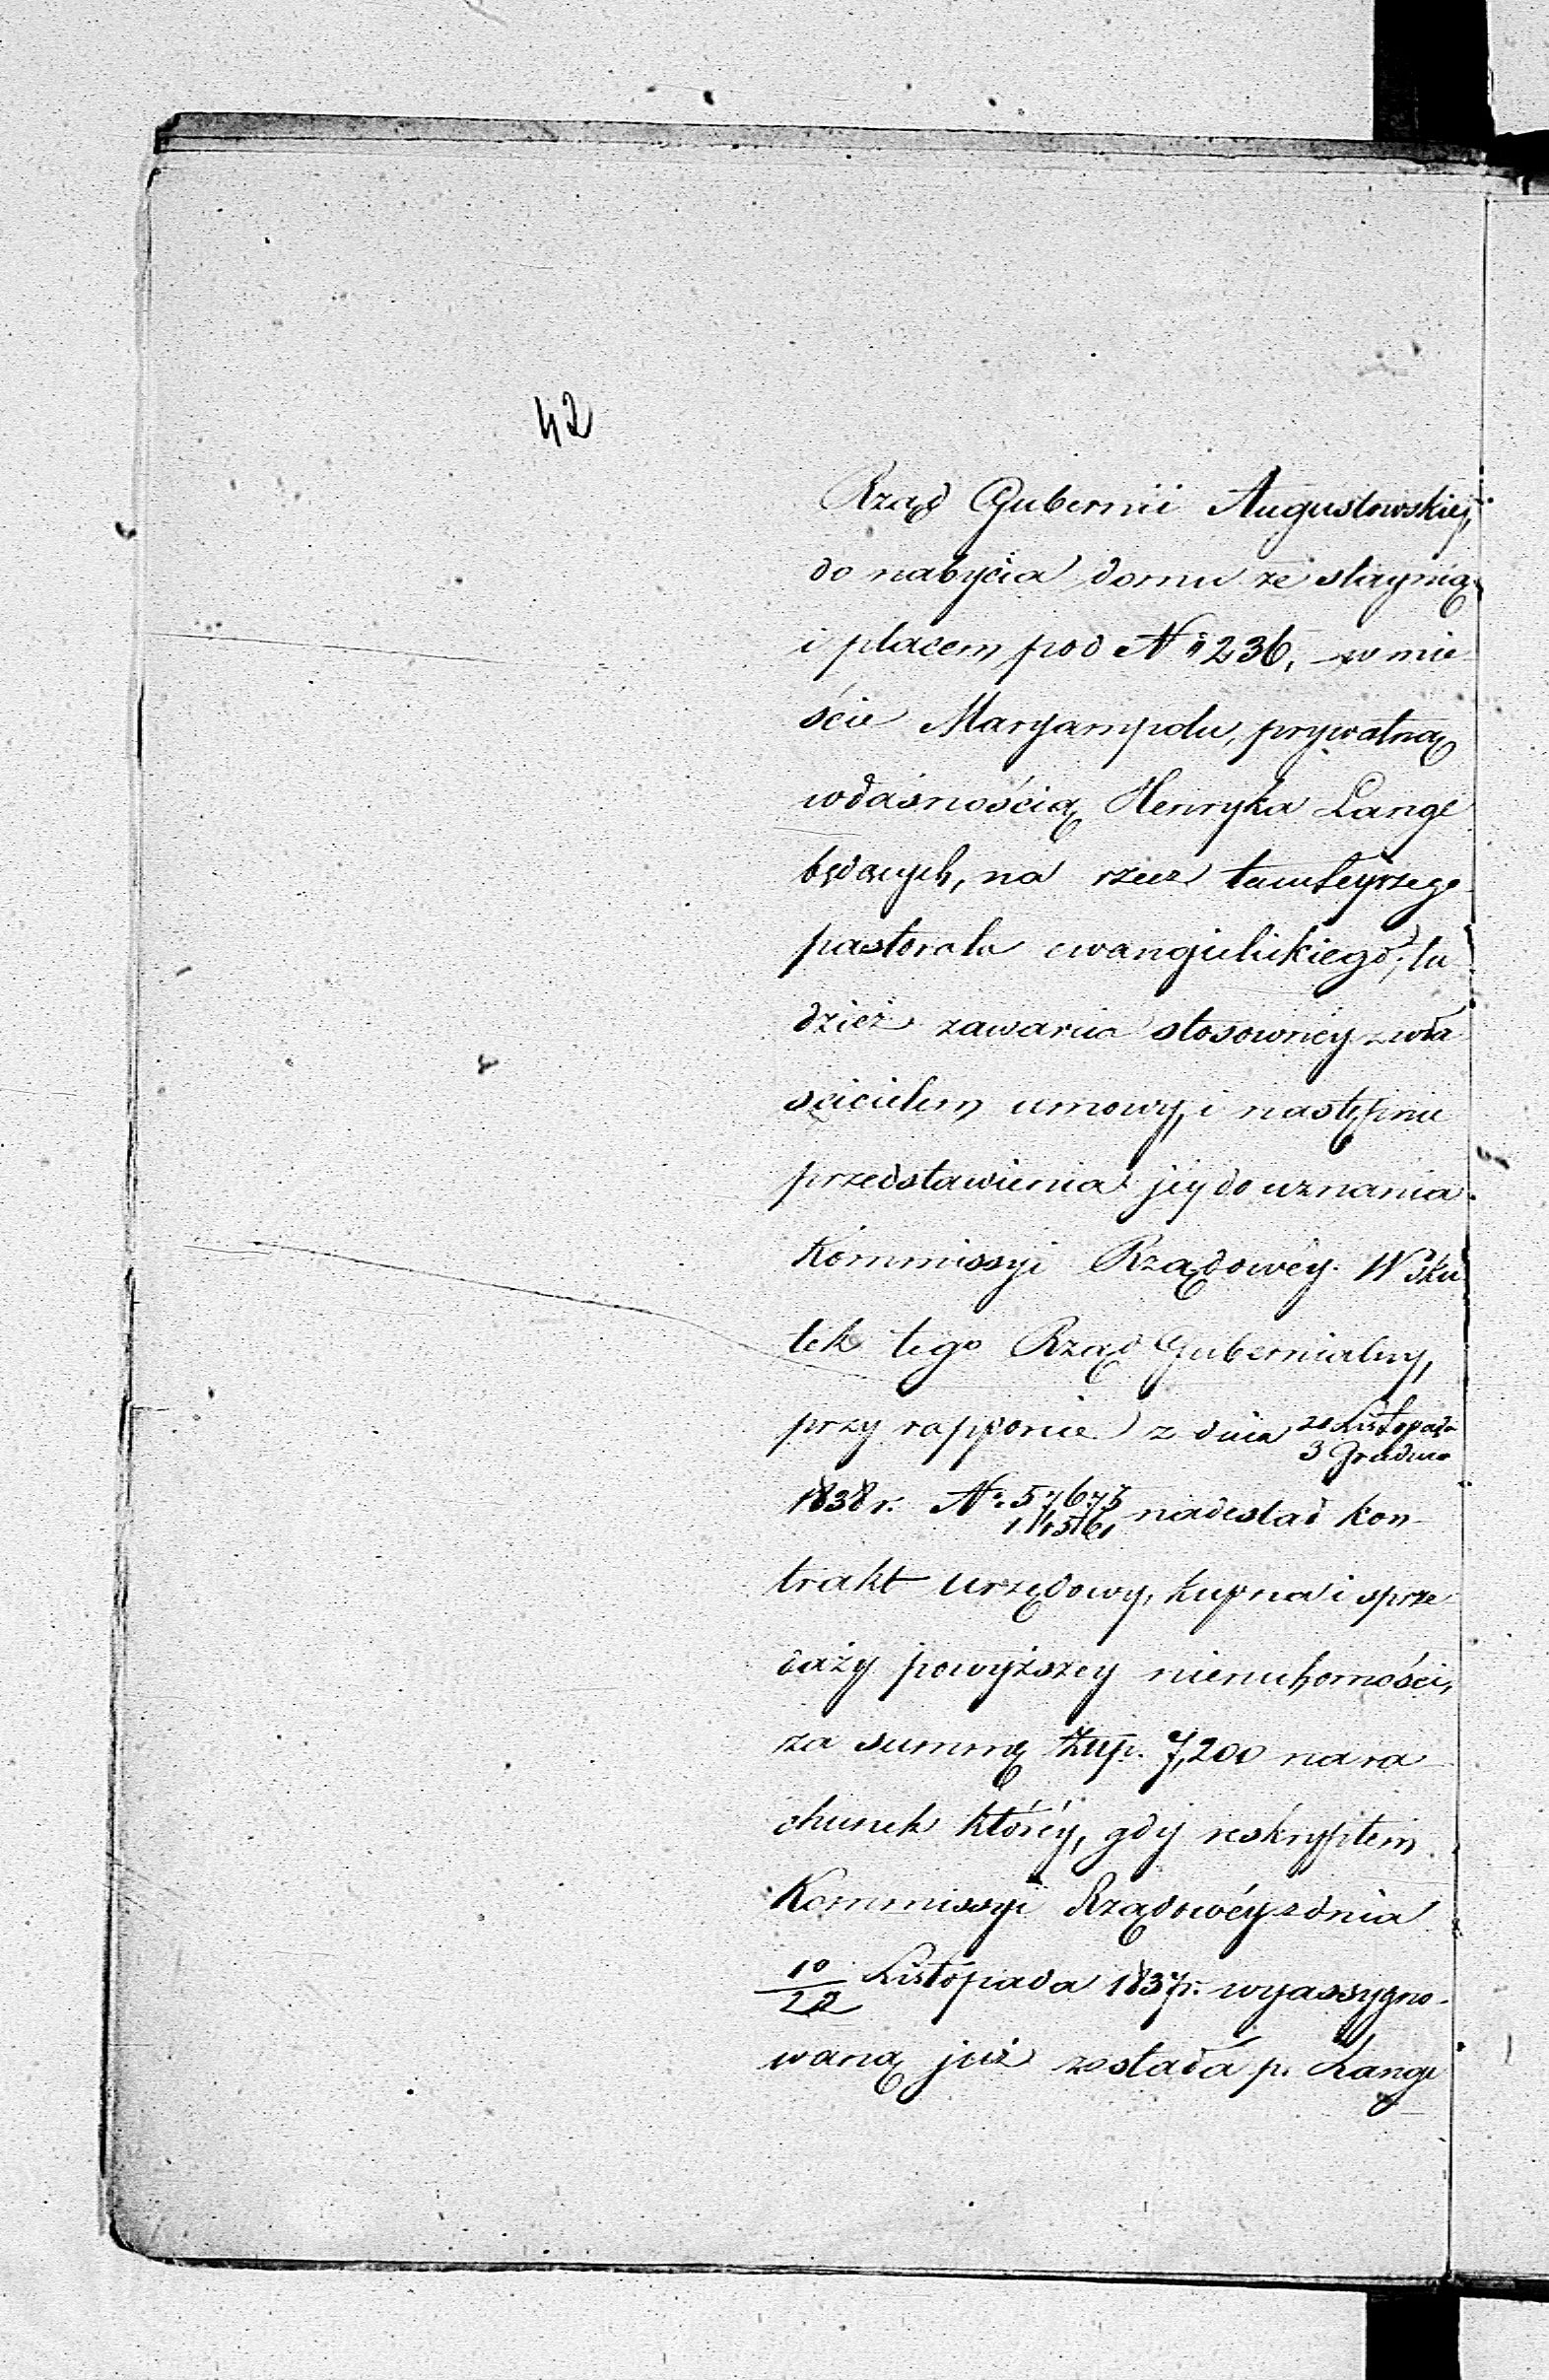 42
Rząd Gubernii Augustowskiej,
do nabycia domu ze staynią
i placem pod Nº 236, w mie
ście Maryampolu, prywatną
własnością Henryka Lange
będących, na rzecz tamteyszego
pastorała ewangielickiego, tu
dzież zawarcia stosownéy z wła
ścicielem umowy, i następnie
przedstawienia jéy do uznania
Kommissyi Rządowéy. W sku
tek tego Rząd Gubernialny,
przy rapporcie z dnia 20 Listopada
3 Grudnia
1838 r. Nº 57675
nadesłał kon-
trakt urzędowy, kupna i sprze
daży powyższey nieruchomości,
za summę Złłp. 7,200 na ra
chunek któréy, gdy reskryptem
Kommissyi Rządowéy z dnia
10/22 Listopada 1837 r. wyassygno-
waną już została p. Lange